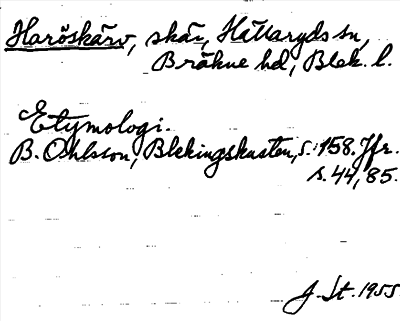 Haröskärv, skär, Hällaryds sn,
Bräkne hd, Blek. l.
Etymologi.
B. Ohlsson, Blekingskusten, s. 158. Jfr.
s. 44, 85.
J. St. 1955